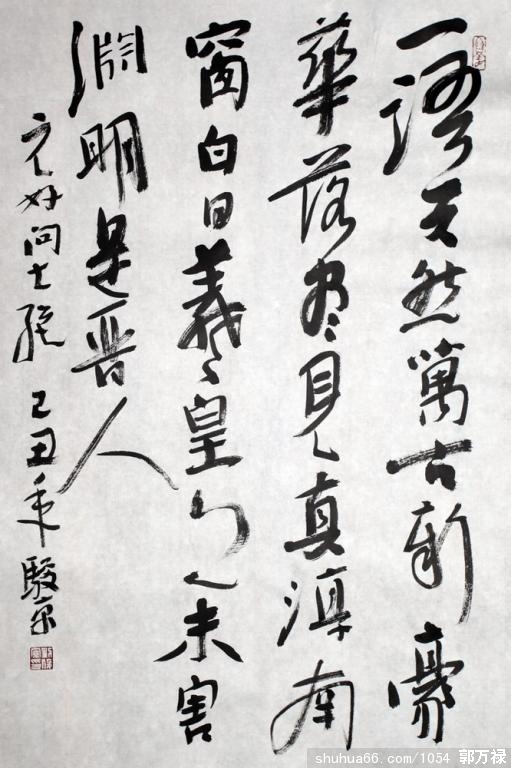 一語天然萬古新豪
華落盡見真淳南
窗白日羲皇未害
淵明是晋人
元好问 己丑年
shuhua66.com/1054 郭万禄